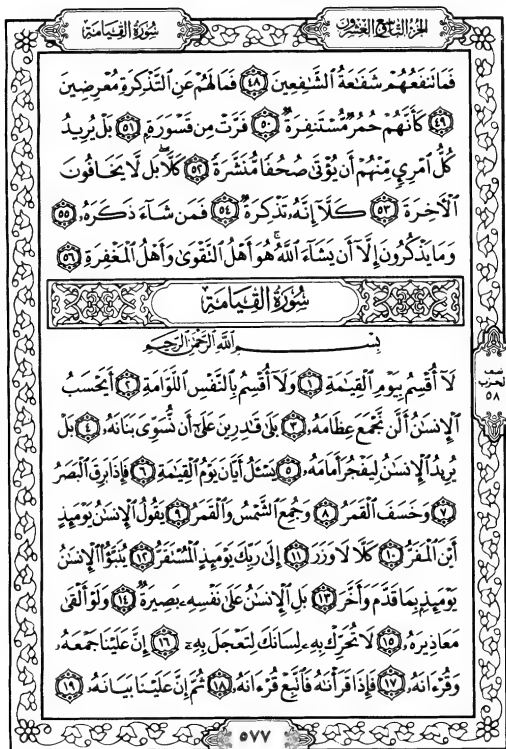 الجزء التاسع والعشرون
سورة القيامة
فَمَا تَنفَعُهُمْ شَفَٰعَةُ ٱلشَّٰفِعِينَ ٤٨ فَمَا لَهُمْ عَنِ ٱلتَّذْكِرَةِ مُعْرِضِينَ
٤٩ كَأَنَّهُمْ حُمُرٌ مُّسْتَنفِرَةٌ ٥٠ فَرَّتْ مِن قَسْوَرَةٍ ٥١ بَلْ يُرِيدُ
كُلُّ ٱمْرِئٍ مِّنْهُمْ أَن يُؤْتَىٰ صُحُفًا مُّنَشَّرَةً ٥٢ كَلَّا ۖ بَل لَّا يَخَافُونَ
ٱلْأَخِرَةَ ٥٣ كَلَّآ إِنَّهُۥ تَذْكِرَةٌ ٥٤ فَمَن شَآءَ ذَكَرَهُۥ ٥٥
وَمَا يَذْكُرُونَ إِلَّآ أَن يَشَآءَ ٱللَّهُ ۚ هُوَ أَهْلُ ٱلتَّقْوَىٰ وَأَهْلُ ٱلْمَغْفِرَةِ ٥٦
سُورَةُ القِيَامَة
بِسْمِ ٱللَّهِ ٱلرَّحْمَٰنِ ٱلرَّحِيمِ
لَآ أُقْسِمُ بِيَوْمِ ٱلْقِيَٰمَةِ ١ وَلَآ أُقْسِمُ بِٱلنَّفْسِ ٱللَّوَّامَةِ ٢ أَيَحْسَبُ
ٱلْإِنسَٰنُ أَلَّن نَّجْمَعَ عِظَامَهُۥ ٣ بَلَىٰ قَٰدِرِينَ عَلَىٰٓ أَن نُّسَوِّىَ بَنَانَهُۥ ٤ بَلْ
يُرِيدُ ٱلْإِنسَٰنُ لِيَفْجُرَ أَمَامَهُۥ ٥ يَسْـَٔلُ أَيَّانَ يَوْمُ ٱلْقِيَٰمَةِ ٦ فَإِذَا بَرِقَ ٱلْبَصَرُ
٧ وَخَسَفَ ٱلْقَمَرُ ٨ وَجُمِعَ ٱلشَّمْسُ وَٱلْقَمَرُ ٩ يَقُولُ ٱلْإِنسَٰنُ يَوْمَئِذٍ
أَيْنَ ٱلْمَفَرُّ ١٠ كَلَّا لَا وَزَرَ ١١ إِلَىٰ رَبِّكَ يَوْمَئِذٍ ٱلْمُسْتَقَرُّ ١٢ يُنَبَّؤُا۟ ٱلْإِنسَٰنُ
يَوْمَئِذٍۭ بِمَا قَدَّمَ وَأَخَّرَ ١٣ بَلِ ٱلْإِنسَٰنُ عَلَىٰ نَفْسِهِۦ بَصِيرَةٌ ١٤ وَلَوْ أَلْقَىٰ
مَعَاذِيرَهُۥ ١٥ لَا تُحَرِّكْ بِهِۦ لِسَانَكَ لِتَعْجَلَ بِهِۦٓ ١٦ إِنَّ عَلَيْنَا جَمْعَهُۥ
وَقُرْءَانَهُۥ ١٧ فَإِذَا قَرَأْنَٰهُ فَٱتَّبِعْ قُرْءَانَهُۥ ١٨ ثُمَّ إِنَّ عَلَيْنَا بَيَانَهُۥ ١٩
نصف
الحزب
٥٨
٥٧٧